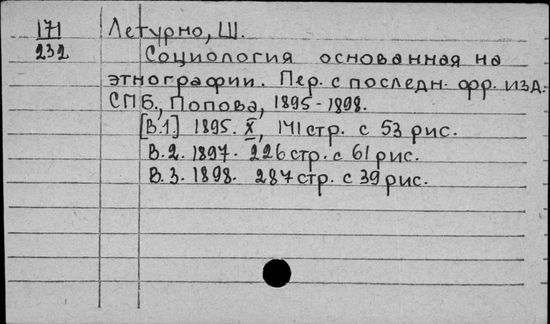 171 Летурно, Ш.
232 Социология основанная на
этнографии. Пер. с последн. фр. изд.
СПБ., Попова, 1895-1898.
[В.1] 1895. X, 141 стр. с 53 рис.
В.2. 1897. 226 стр. с 61 рис.
В.3. 1898. 287 стр. с 39 рис.